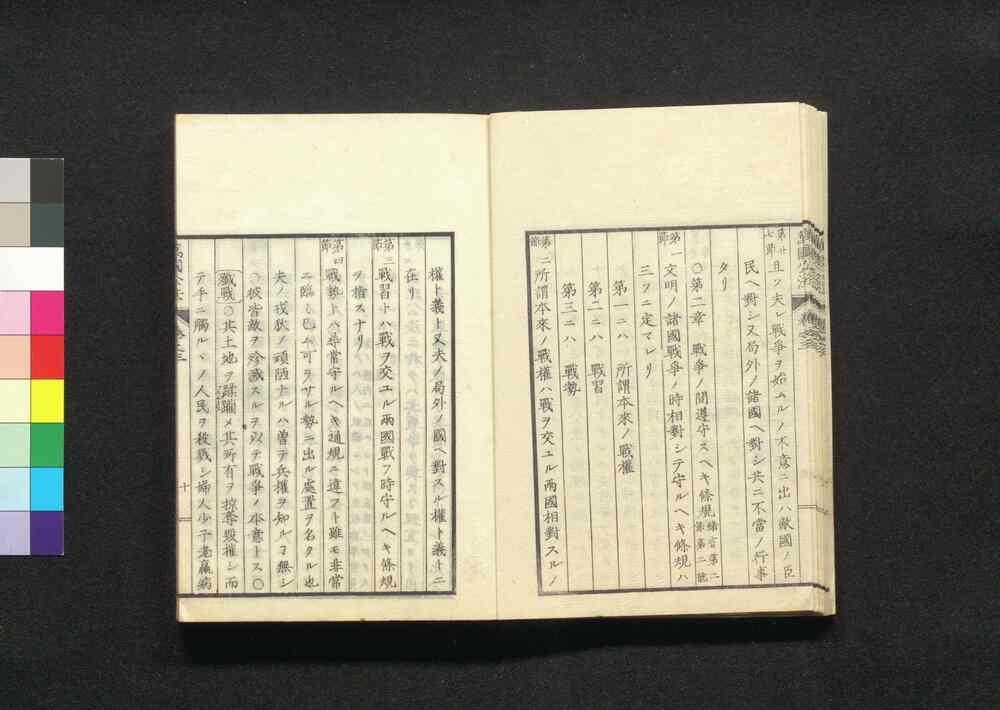 第廿七節
且ツ夫レ戦争ヲ始ムルノ不意ニ出ハ敵國ノ臣
民ヘ對シ又局外ノ諸國ヘ對シ共ニ不當ノ行事
タリ
〇第二章 戦争ノ間遵守スヘキ條規緒言第二條第二號
第一節
文明ノ諸國戦争ノ時相對シテ守ルヘキ條規ハ
三ツニ定マレリ
第一ニハ 所謂本來ノ戦權
第二ニハ 戦習
第三ニハ 戦勢
第二節
所謂本來ノ戦權ハ戦ヲ交ユル兩國相對スルノ
權ト義ト又夫ノ局外ノ國ヘ對スル權ト義トニ
在リ
第三節
戦習トハ戦ヲ交ユル兩國戦フ時守ルヘキ條規
ヲ指スナリ
第四節
戦勢トハ尋常守ルヘキ通規ニ違フト雖モ非常
ニ臨ミ已ム可ラサル勢ニ出ル處置ヲ名タル也
夫ノ戎狄ノ頑陋ナルハ曽テ兵權ヲ知ルヿ無シ
〇彼皆敵ヲ殄滅スルヲ以テ戦争ノ本意トス〇
殲戦〇其土地ヲ蹂躙メ其所有ヲ掠奪毀摧シ而
テ手ニ觸ルヽノ人民ヲ殺戮シ婦人少子老羸病
萬國公法
巻三
十